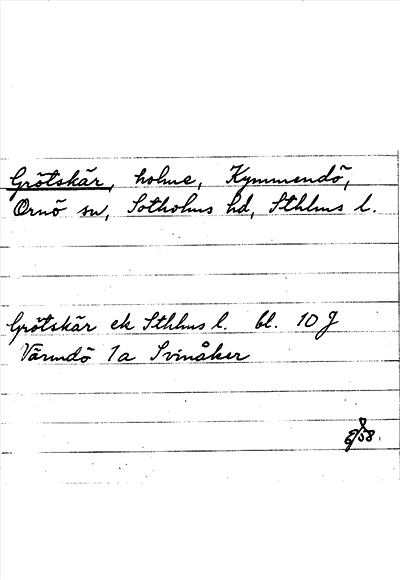 Grötskär, holme, Kymmendö,
Ornö sn, Sotholms hd, Sthlms l.
Grötskär ek Sthlms l. bl. 10 J
Värmdö 1a Svinåker
/58.